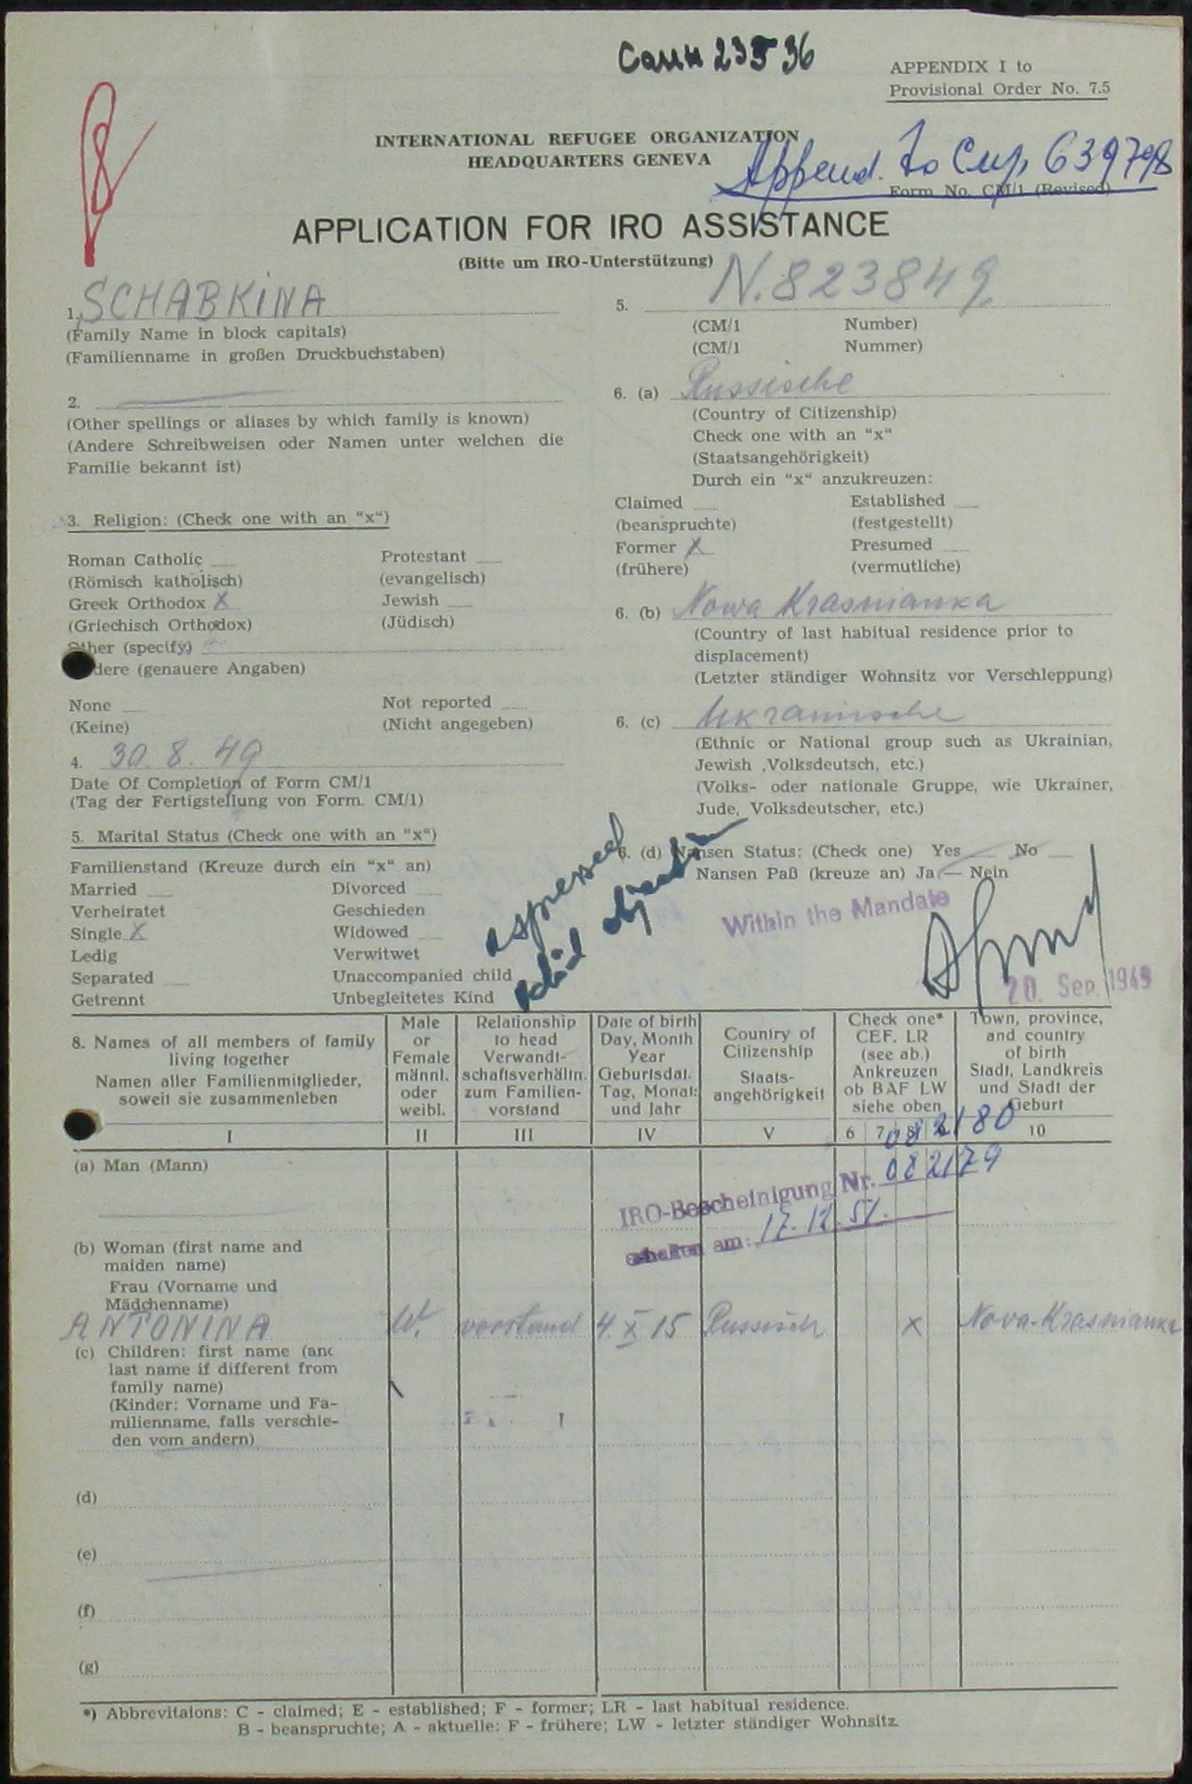 23536
APPENDIX I to
Provisional Order No. 7.5
INTERNATIONAL REFUGEE ORGANIZATION
HEADQUARTERS GENEVA
Append. to 639798
Form No. CM/1 (Revised)
APPLICATION FOR IRO ASSISTANCE
(Bitte um IRO-Unterstützung)
1. SCHABKINA
(Family Name in block capitals)
(Familienname in großen Druckbuchstaben)
2.
(Other spellings or aliases by which family is known)
(Andere Schreibweisen oder Namen unter welchen die
Familie bekannt ist)
3. Religion: (Check one with an "x")
Roman Catholic Protestant
(Römisch katholisch) (evangelisch)
Greek Orthodox X Jewish
(Griechisch Orthodox) (Jüdisch)
Other (specify)
dere (genauere Angaben)
None Not reported
(Keine) (Nicht angegeben)
4. 30. 8. 49
Date Of Completion of Form CM/1
(Tag der Fertigstellung von Form. CM/1)
5. Marital Status (Check one with an "x")
Familienstand (Kreuze durch ein "x" an)
Married Divorced
Verheiratet Geschieden
Single X Widowed
Ledig Verwitwet
Separated Unaccompanied child
Getrennt Unbegleitetes Kind
5. N. 823849
(CM/1 Number)
(CM/1 Nummer)
6. (a) Russische
(Country of Citizenship)
Check one with an "x"
(Staatsangehörigkeit)
Durch ein "x" anzukreuzen:
Claimed Established
(beanspruchte) (festgestellt)
Former X Presumed
(frühere) (vermutliche)
6. (b) Nowa Krasnianka
(Country of last habitual residence prior to
displacement)
(Letzter ständiger Wohnsitz vor Verschleppung)
6. (c) Ukrainische
(Ethnic or National group such as Ukrainian,
Jewish ,Volksdeutsch, etc.)
(Volks- oder nationale Gruppe, wie Ukrainer,
Jude, Volksdeutscher, etc.)
6. (d) Nansen Status: (Check one) Yes No
Nansen Paß (kreuze an) Ja — Nein
expressed
valid objection
Within the Mandate
20. Sep. 1949
8. Names of all members of family
living together
Namen aller Familienmitglieder,
soweit sie zusammenleben
Male
or
Female
männl.
oder
weibl.
Relationship
to head
Verwandt-
schaftsverhältn.
zum Familien-
vorstand
Date of birth
Day, Month
Year
Geburtsdat.
Tag, Monat:
und Jahr
Country of
Citizenship
Staats-
angehörigkeit
Check one*
CEF. LR
(see ab.)
Ankreuzen
ob BAF LW
siehe oben
Town, province,
and country
of birth
Stadt, Landkreis
und Stadt der
Geburt
I II III IV V 6 7 10
082180
(a) Man (Mann)
IRO-Bescheinigung Nr. 082179
erhalten am: 17.12.51.
(b) Woman (first name and
maiden name)
Frau (Vorname und
Mädchenname)
ANTONINA W. vorstand 4 X 15 Russisch X Nova-Krasnianka
(c) Children: first name (anc
last name if different from
family name)
(Kinder: Vorname und Fa-
milienname, falls verschie-
den vom andern)
(d)
(e)
(f)
(g)
*) Abbrevitaions: C - claimed; E - established; F - former; LR - last habitual residence.
B - beanspruchte; A - aktuelle; F - frühere; LW - letzter ständiger Wohnsitz